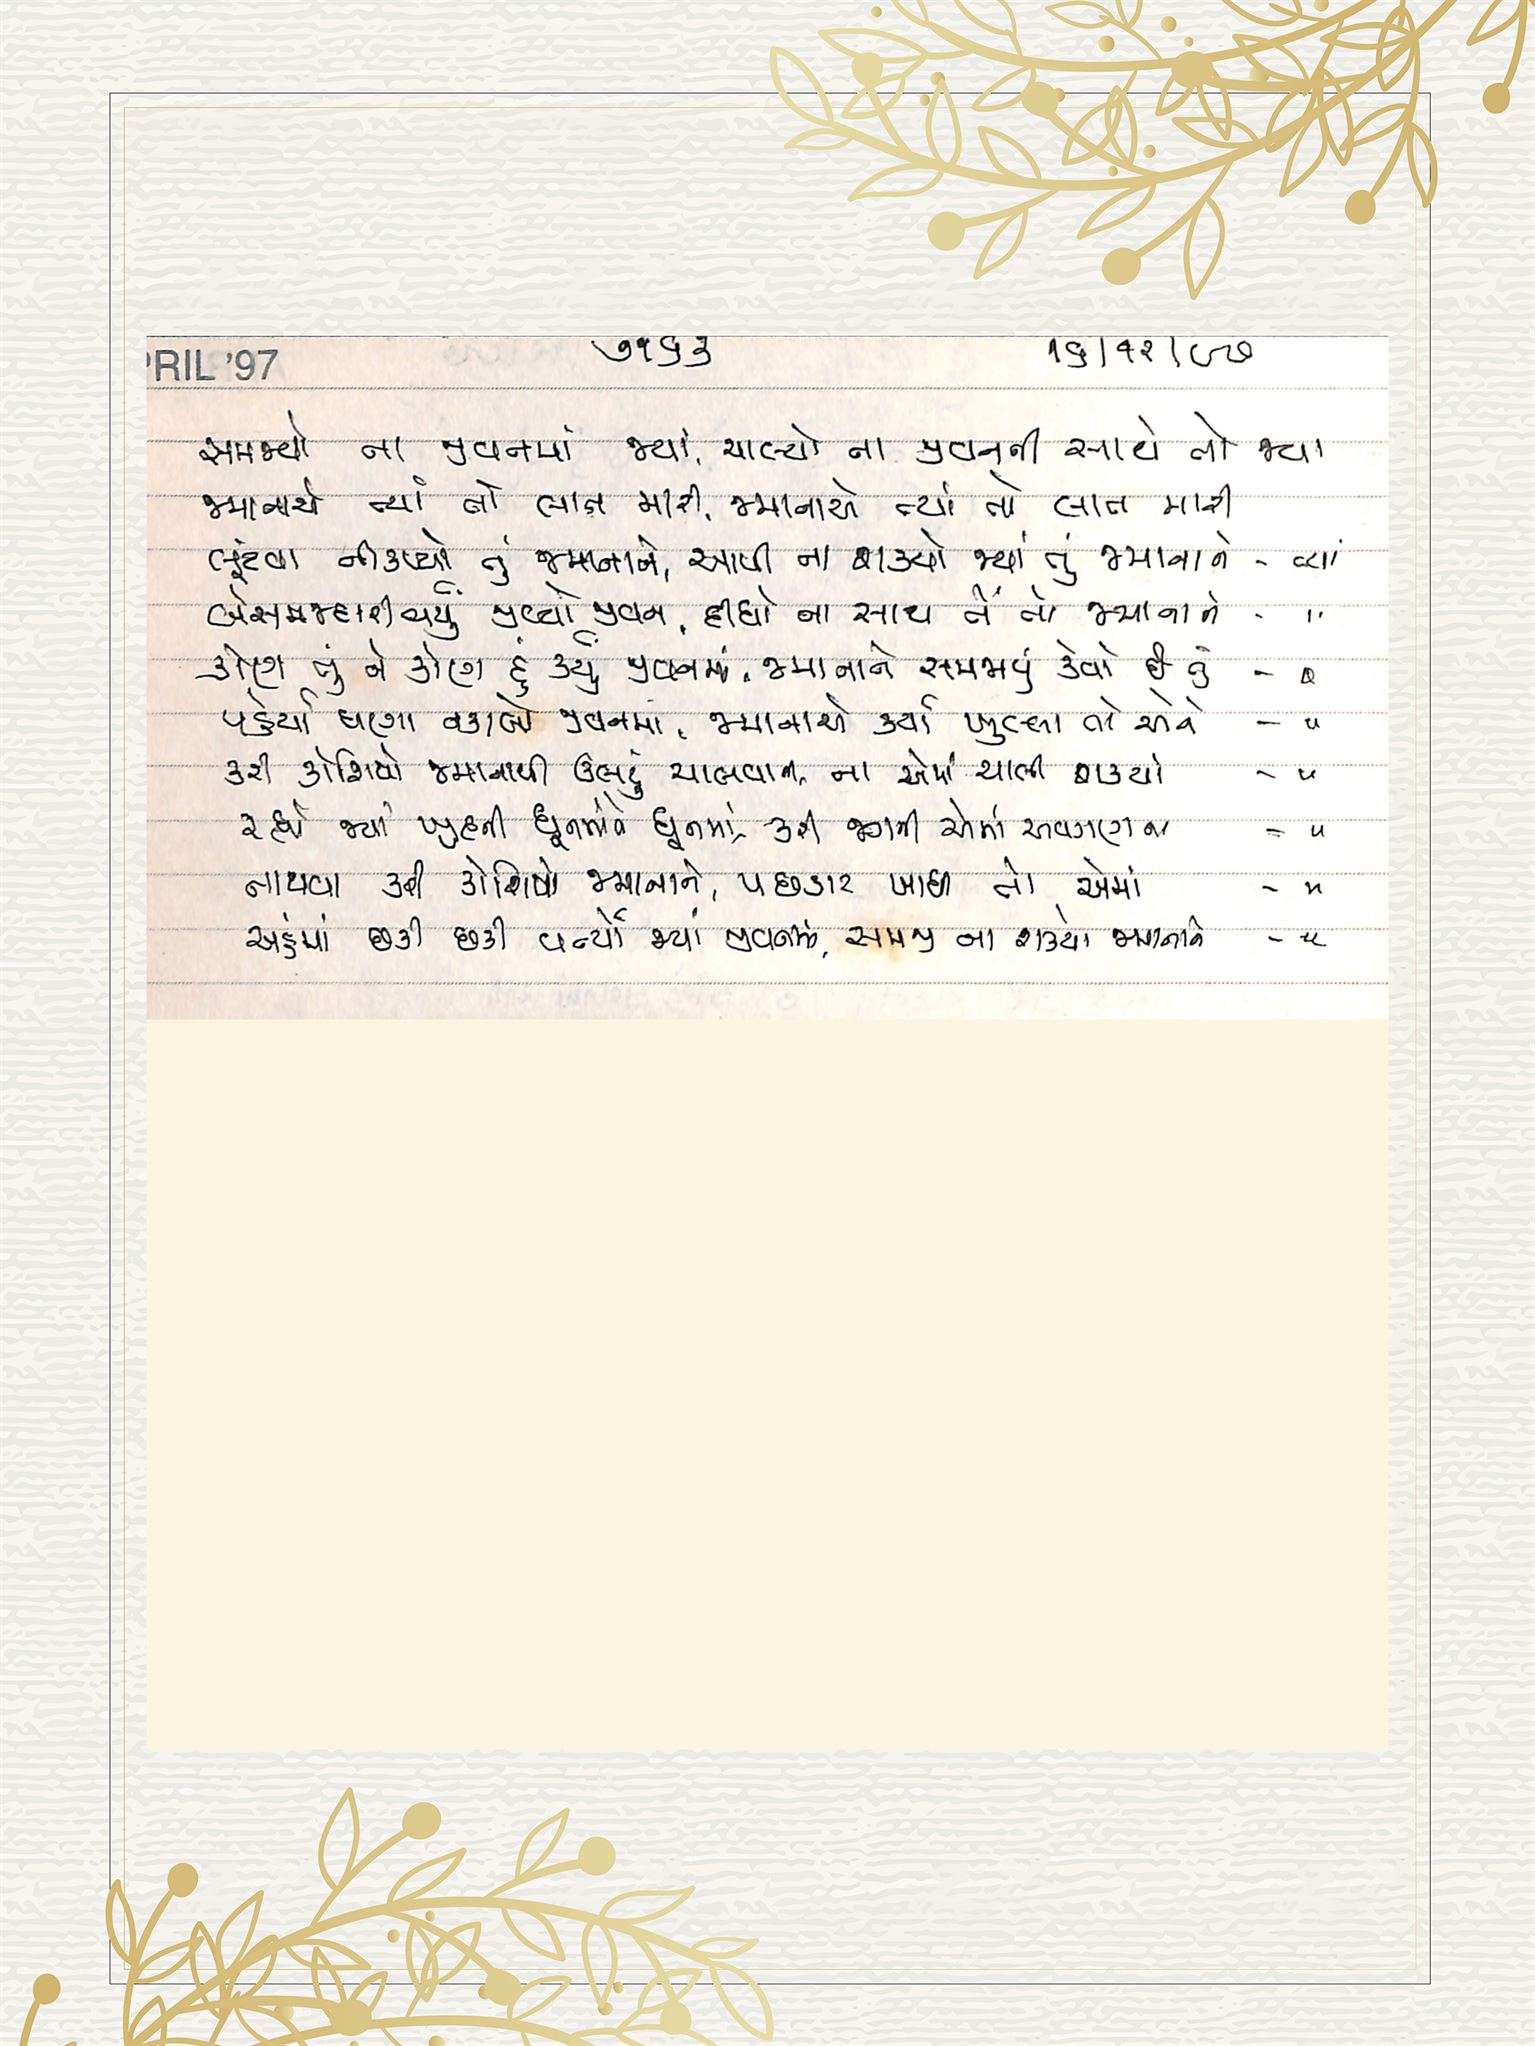 PRIL '97 ૭૧૬૩ ૧૬/૧૨/૯૭
સમજ્યો ના જીવનમાં જ્યાં, ચાલ્યો ના જીવનની સાથે તો જ્યાં
જમાનાએ ત્યાં તો લાત મારી, જમાનાએ ત્યાં તો લાત મારી
લૂંટવા નીકળ્યો તું જમાનાને, આપી ના શક્યો જ્યાં તું જમાનાને - ત્યાં
બેસમજદારીભર્યું જીવ્યો જીવન, દીધો ના સાથ તેં તો જમાનાને - "
કોણ તું ને કોણ હું કર્યું જીવનમાં, જમાનાને સમજાવ્યું કેવો છે તું -
પહેર્યા ઘણા નકાબો જીવનમાં, જમાનાએ કર્યા ખુલ્લા તો એને - "
કરી કોશિષો જમાનાથી ઉલટું ચાલવાના, ના એમાં ચાલી શક્યો - "
રહ્યો જ્યાં ખુદની ધૂનમાંને ધૂનમાં, કરી જગની એમાં અવગણના - "
નાથવા કરી કોશિષો જમાનાને, પછડાટ ખાધી તો એમાં - "
અહંમાં છકી છકી બન્યો જ્યાં જીવનમાં, સમજી ના શક્યો જમાનાને - "